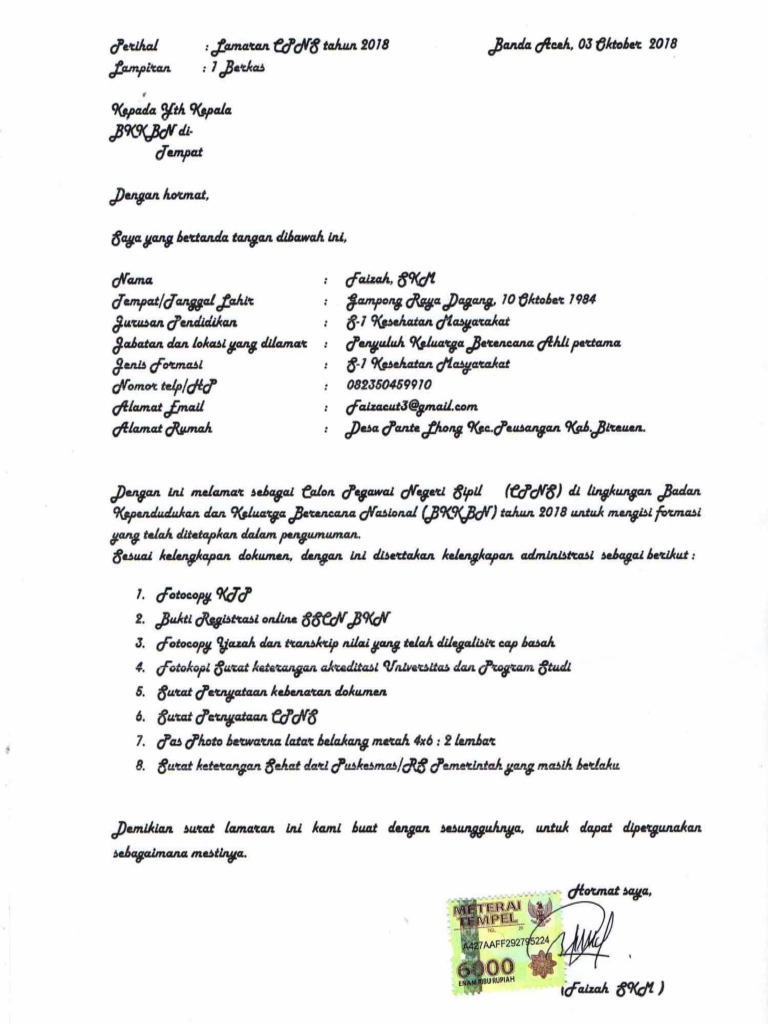 Perihal : Lamaran CPNS tahun 2018 Banda Aceh, 03 Oktober 2018
Lampiran : 1 Berkas
Kepada Yth Kepala
BKKBN di-
Tempat
Dengan hormat,
Saya yang bertanda tangan dibawah ini,
Nama : Faizah, SKM
Tempat/Tanggal Lahir : Gampong Raya Dagang, 10 Oktober 1984
Jurusan Pendidikan : S-1 Kesehatan Masyarakat
Jabatan dan lokasi yang dilamar : Penyuluh Keluarga Berencana Ahli pertama
Jenis Formasi : S-1 Kesehatan Masyarakat
Nomor telp/HP : 082350459910
Alamat Email : Faizacut3@gmail.com
Alamat Rumah : Desa Pante Lhong Kec.Peusangan Kab.Bireuen.
Dengan ini melamar sebagai Calon Pegawai Negeri Sipil (CPNS) di lingkungan Badan
Kependudukan dan Keluarga Berencana Nasional (BKKBN) tahun 2018 untuk mengisi formasi
yang telah ditetapkan dalam pengumuman.
Sesuai kelengkapan dokumen, dengan ini disertakan kelengkapan administrasi sebagai berikut :
1. Fotocopy KTP
2. Bukti Registrasi online SSCN BKN
3. Fotocopy Ijazah dan transkrip nilai yang telah dilegalisir cap basah
4. Fotokopi Surat keterangan akreditasi Universitas dan Program Studi
5. Surat Pernyataan kebenaran dokumen
6. Surat Pernyataan CPNS
7. Pas Photo berwarna latar belakang merah 4x6 : 2 lembar
8. Surat keterangan Sehat dari Puskesmas/RS Pemerintah yang masih berlaku
Demikian surat lamaran ini kami buat dengan sesungguhnya, untuk dapat dipergunakan
sebagaimana mestinya.
Hormat saya,
METERAI
TEMPEL
A427AAFF292795224
6000
ENAM RIBU RUPIAH
(Faizah SKM )